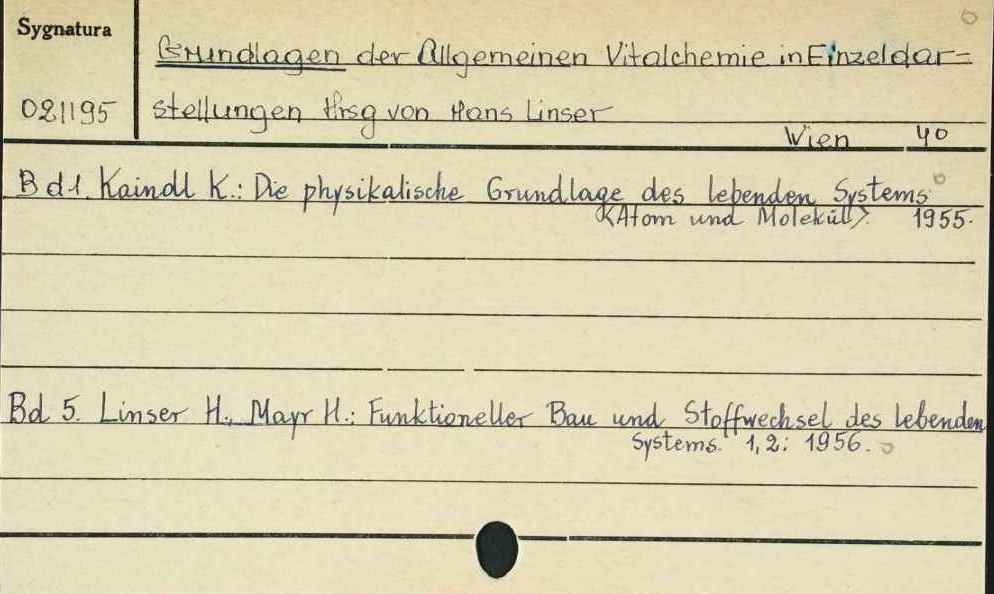 Sygnatura
021195
Grundlagen der Allgemeinen Vitalchemie in Einzeldar=
stellungen Hrsg von Hans Linser
Wien 40
Bd 1. Kaindl K.: Die physikalische Grundlage des lebenden Systems
<Atom und Molekül>. 1955.
Bd 5. Linser H., Mayr H.: Funktioneller Bau und Stoffwechsel des lebenden
Systems. 1,2: 1956.